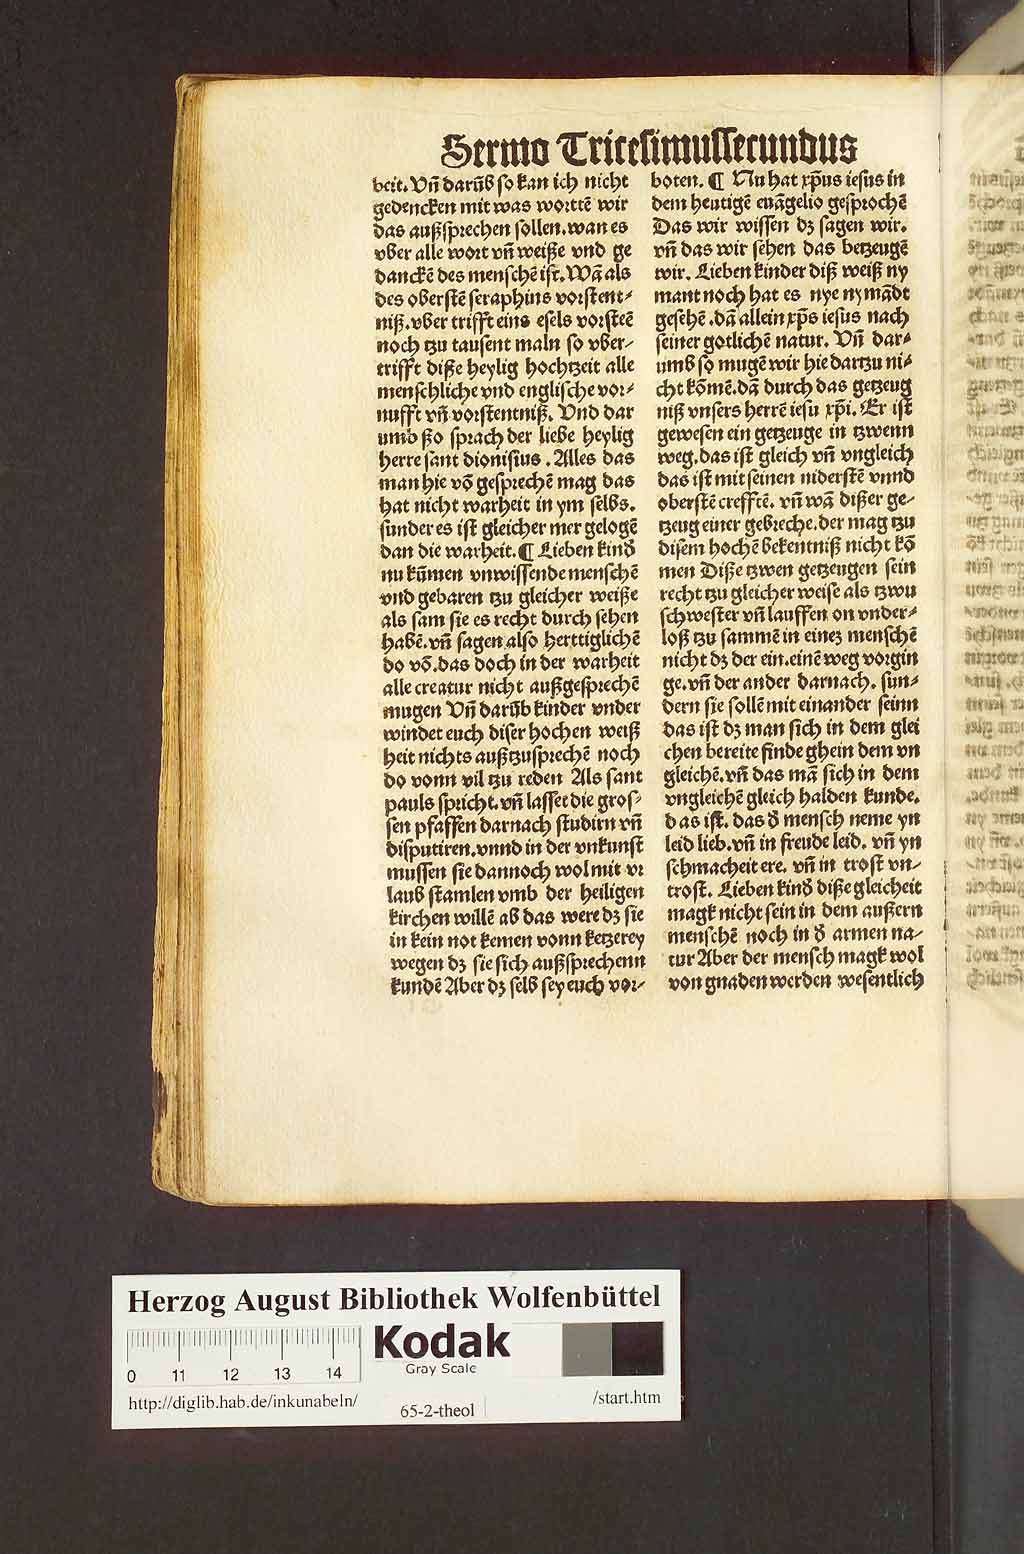 Sermo Tricesimussecundus
beit. Vñ darūb so kan ich nicht
gedencken mit was worttē wir
das außsprechen sollen. wan es
vber alle wort vñ weiße vnd ge
danckē des menschē ist. Wā als
des oberstē seraphins vorstent⸗
niß. vber trifft eins esels vorsteē
noch tzu tausent maln so vber⸗
trifft diße heylig hochtzeit alle
menschliche vnd englische vor⸗
nufft vñ vorstentniß. Vnd dar
umb ßo sprach der liebe heylig
herre sant dionisius . Alles das
man hie vō gesprechē mag das
hat nicht warheit in ym selbs.
sunder es ist gleicher mer gelogē
dan die warheit. ¶ Lieben kindꝰ
nu kūmen vnwissende menschē
vnd gebaren tzu gleicher weiße
als sam sie es recht durch sehen
habē. vñ sagen also herttiglichē
do vō. das doch in der warheit
alle creatur nicht außgesprechē
mugen Vñ darūb kinder vnder
windet euch diser hochen weiß
heit nichts außtzusprechē noch
do vonn vil tzu reden Als sant
pauls spricht. vñ lasset die gros⸗
sen pfaffen darnach studirn vñ
disputiren. vnnd in der vnkunst
mussen sie dannoch wol mit vr
laub stamlen vmb der heiligen
kirchen willē ab das were dꝫ sie
in kein not kemen vonn ketzerey
wegen dꝫ sie sich außsprechenn
kundē Aber dꝫ selb sey euch vor⸗
boten. ¶ Nu hat xp̄us iesus in
dem heutigē euāgelio gesprochē
Das wir wissen dꝫ sagen wir.
vñ das wir sehen das betzeugē
wir. Lieben kinder diß weiß ny
mant noch hat es nye nymādt
gesehē. dā allein xp̄s iesus nach
seiner gotlichē natur. Vñ dar⸗
umb so mugē wir hie dartzu ni⸗
cht kōmē. dā durch das getzeug
niß vnsers herrē iesu xp̄i. Er ist
gewesen ein getzeuge in tzwenn
weg. das ist gleich vñ vngleich
das ist mit seinen niderstē vnnd
oberstē crefftē. vñ wā dißer ge⸗
tzeug einer gebreche. der mag tzu
disem hochē bekentniß nicht kō
men Diße tzwen getzeugen sein
recht tzu gleicher weise als tzwu
schwester vñ lauffen on vnder⸗
loß tzu sammē in eineꝫ menschē
nicht dꝫ der ein. einē weg vorgin
ge. vñ der ander darnach. sun⸗
dern sie sollē mit einander seinn
das ist dꝫ man sich in dem glei
chen bereite finde ghein dem vn
gleichē. vñ das mā sich in dem
vngleichē gleich halden kunde.
das ist. das ð mensch neme yn
leid lieb. vñ in freude leid. vñ yn
schmacheit ere. vñ in trost vn⸗
trost. Lieben kindꝰ diße gleicheit
magk nicht sein in dem außern
menschē noch in ð armen na⸗
tur Aber der mensch magk wol
von gnaden werden wesentlich
Herzog August Bibliothek Wolfenbüttel
Kodak
Gray Scale
0 11 12 13 14
http://diglib.hab.de/inkunabeln/
65-2-theol
/start.htm